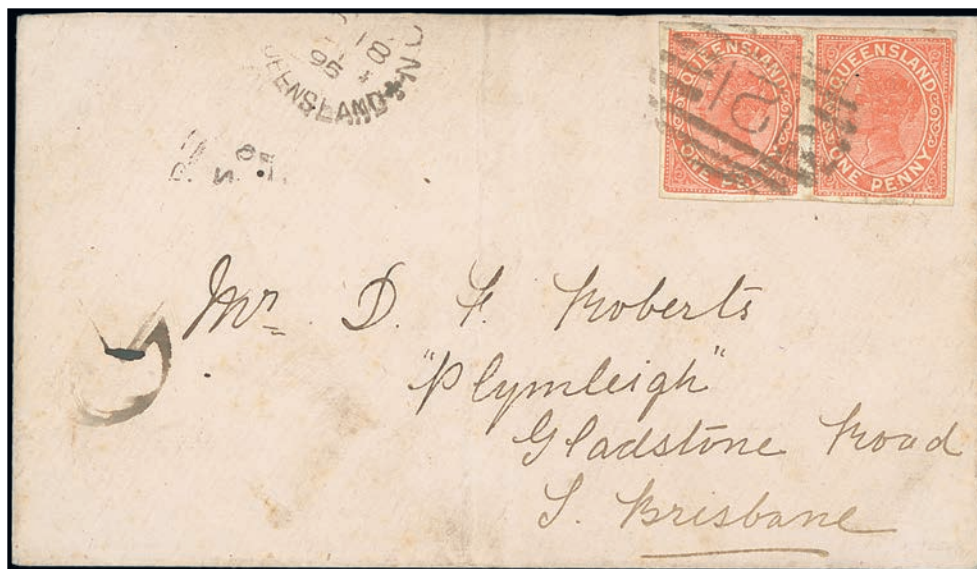 18
95
QUEENSLAND
QUEENSLAND
ONE PENNY
QUEENSLAND
ONE PENNY
Mr D. F. Roberts
"Plymleigh"
Gladstone Road
S. Brisbane